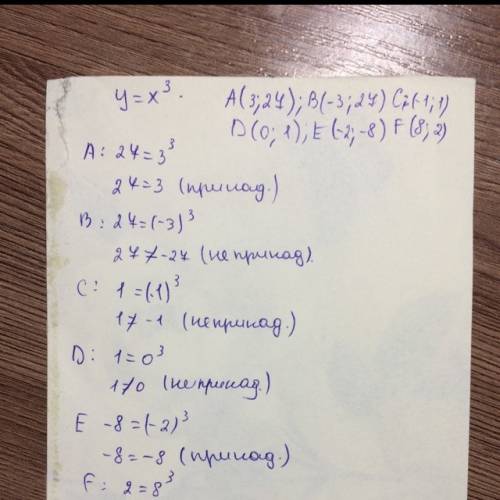 y=x³. A(3;27); B(-3;27) C(-1;1)
D(0; 1); E(-2;-8) F(8;2)
A: 27=3³
27=3 (принад.)
B: 27=(-3)³
27≠-27 (не принад).
C: 1=(-1)³
1≠-1 (не принад.)
D: 1=0³
1≠0 (не принад.)
E -8=(-2)³
-8=-8 (принад.)
F: 2=8³